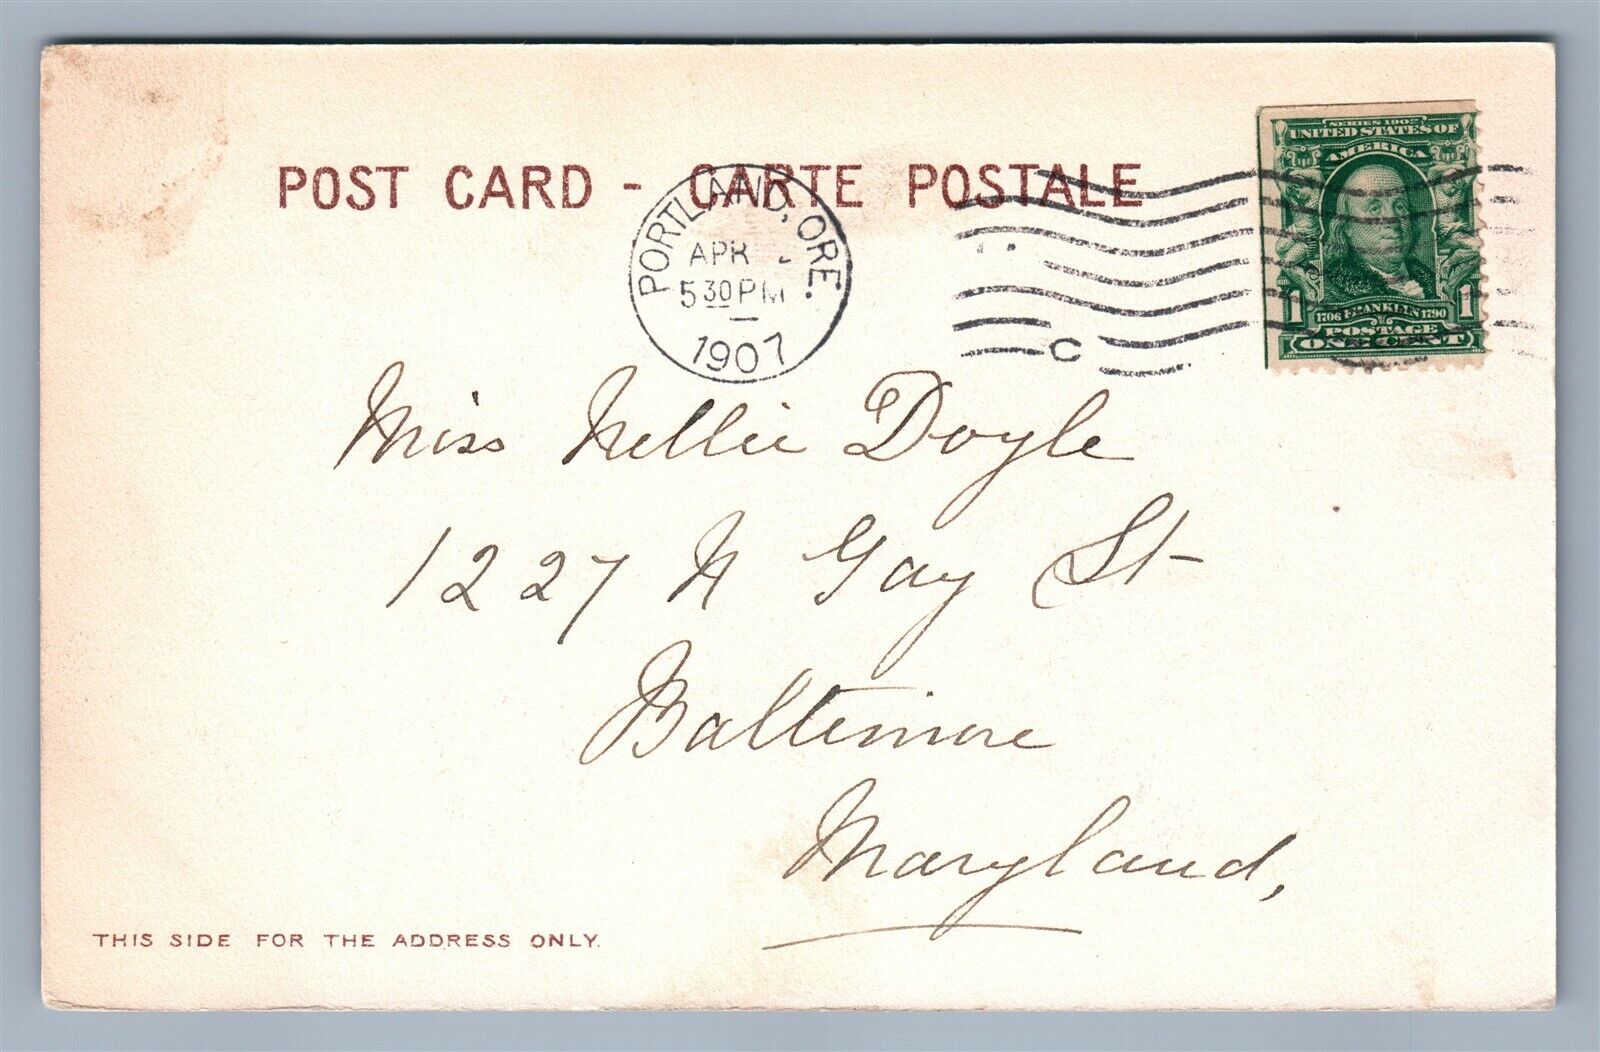 POST CARD - CARTE POSTALE
PORTLAND, ORE.
APR
5 30 PM
1907
C
SERIES 1902
UNITED STATES OF
AMERICA
1706 FRANKLIN 1790
1 POSTAGE 1
ONE CENT
Miss Nellie Doyle
1227 N Gay St
Baltimore
Maryland,
THIS SIDE FOR THE ADDRESS ONLY.